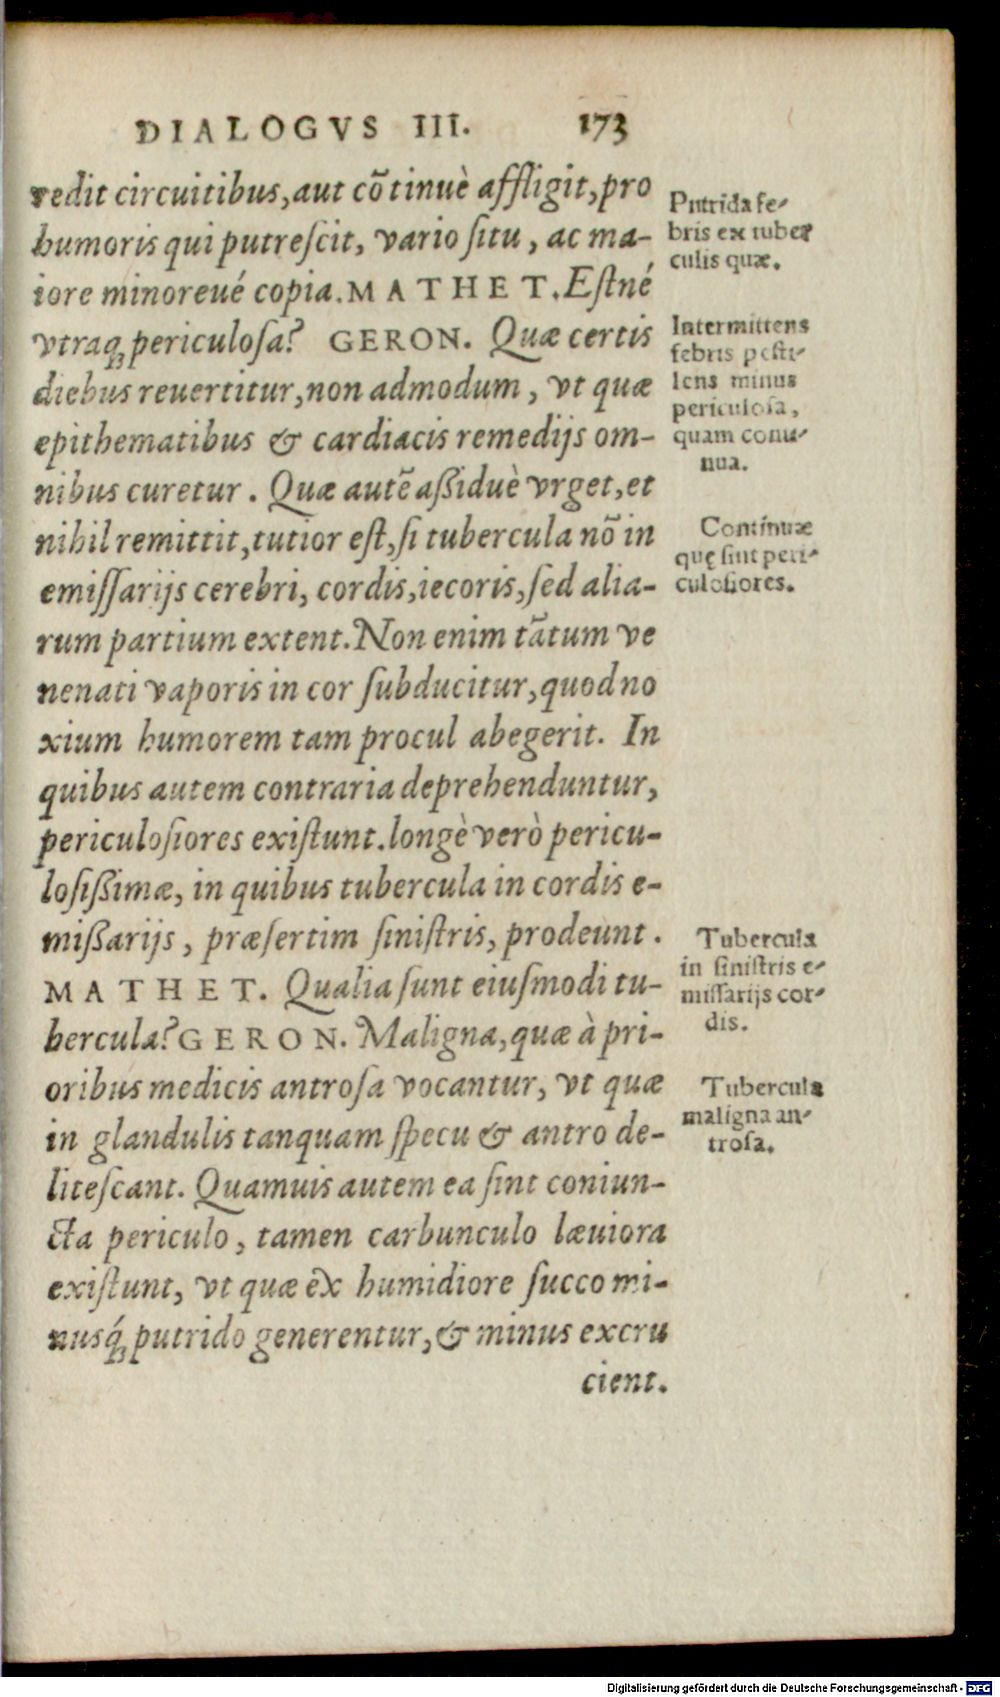 DIALOGVS III. 173
redit circuitibus, aut cõtinuè affligit, pro
humoris qui putreſcit, vario ſitu, ac ma-
iore minoreué copia. MATHET. Eſtné
vtraqꝫ periculoſa? GERON. Quæ certis
diebus reuertitur, non admodum, vt quæ
epithematibus & cardiacis remedijs om-
nibus curetur. Quæ autẽ aßiduè vrget, et
nihil remittit, tutior eſt, ſi tubercula nõ in
emiſſarijs cerebri, cordis, iecoris, ſed alia-
rum partium extent. Non enim tãtum ve
nenati vaporis in cor ſubducitur, quod no
xium humorem tam procul abegerit. In
quibus autem contraria deprehenduntur,
periculoſiores exiſtunt. longè verò pericu-
loſißimæ, in quibus tubercula in cordis e-
mißarijs, præſertim ſiniſtris, prodeunt.
MATHET. Qualia ſunt eiuſmodi tu-
bercula? GERON. Maligna, quæ à pri-
oribus medicis antroſa vocantur, vt quæ
in glandulis tanquam ſpecu & antro de-
liteſcant. Quamuis autem ea ſint coniun-
cta periculo, tamen carbunculo læuiora
exiſtunt, vt quæ ex humidiore ſucco mi-
nusq́ꝫ putrido generentur, & minus excru
cient.
Putrida fe-
bris ex tuber
culis quæ.
Intermittens
febris peſti-
lens minus
periculoſa,
quam conti-
nua.
Continuæ
quę ſint peri-
culoſiores.
Tubercula
in ſiniſtris e-
miſſarijs cor-
dis.
Tubercula
maligna an-
troſa.
Digitalisierung gefördert durch die Deutsche Forschungsgemeinschaft - DFG